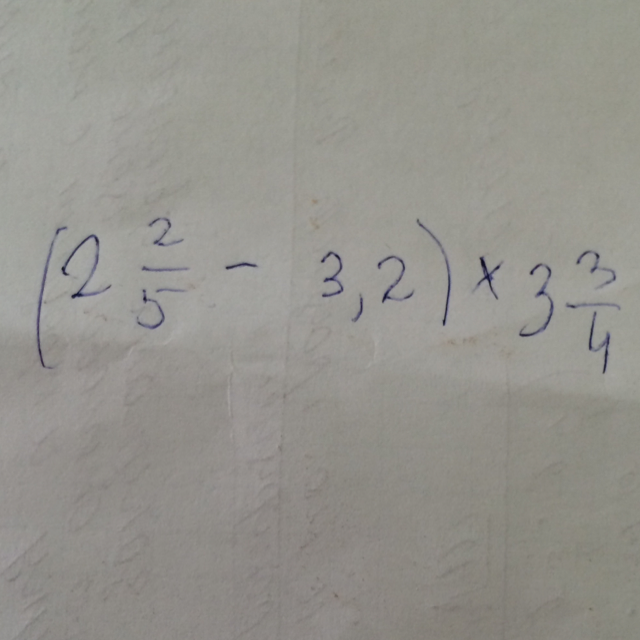 (2 2/5 - 3,2) × 3 3/4